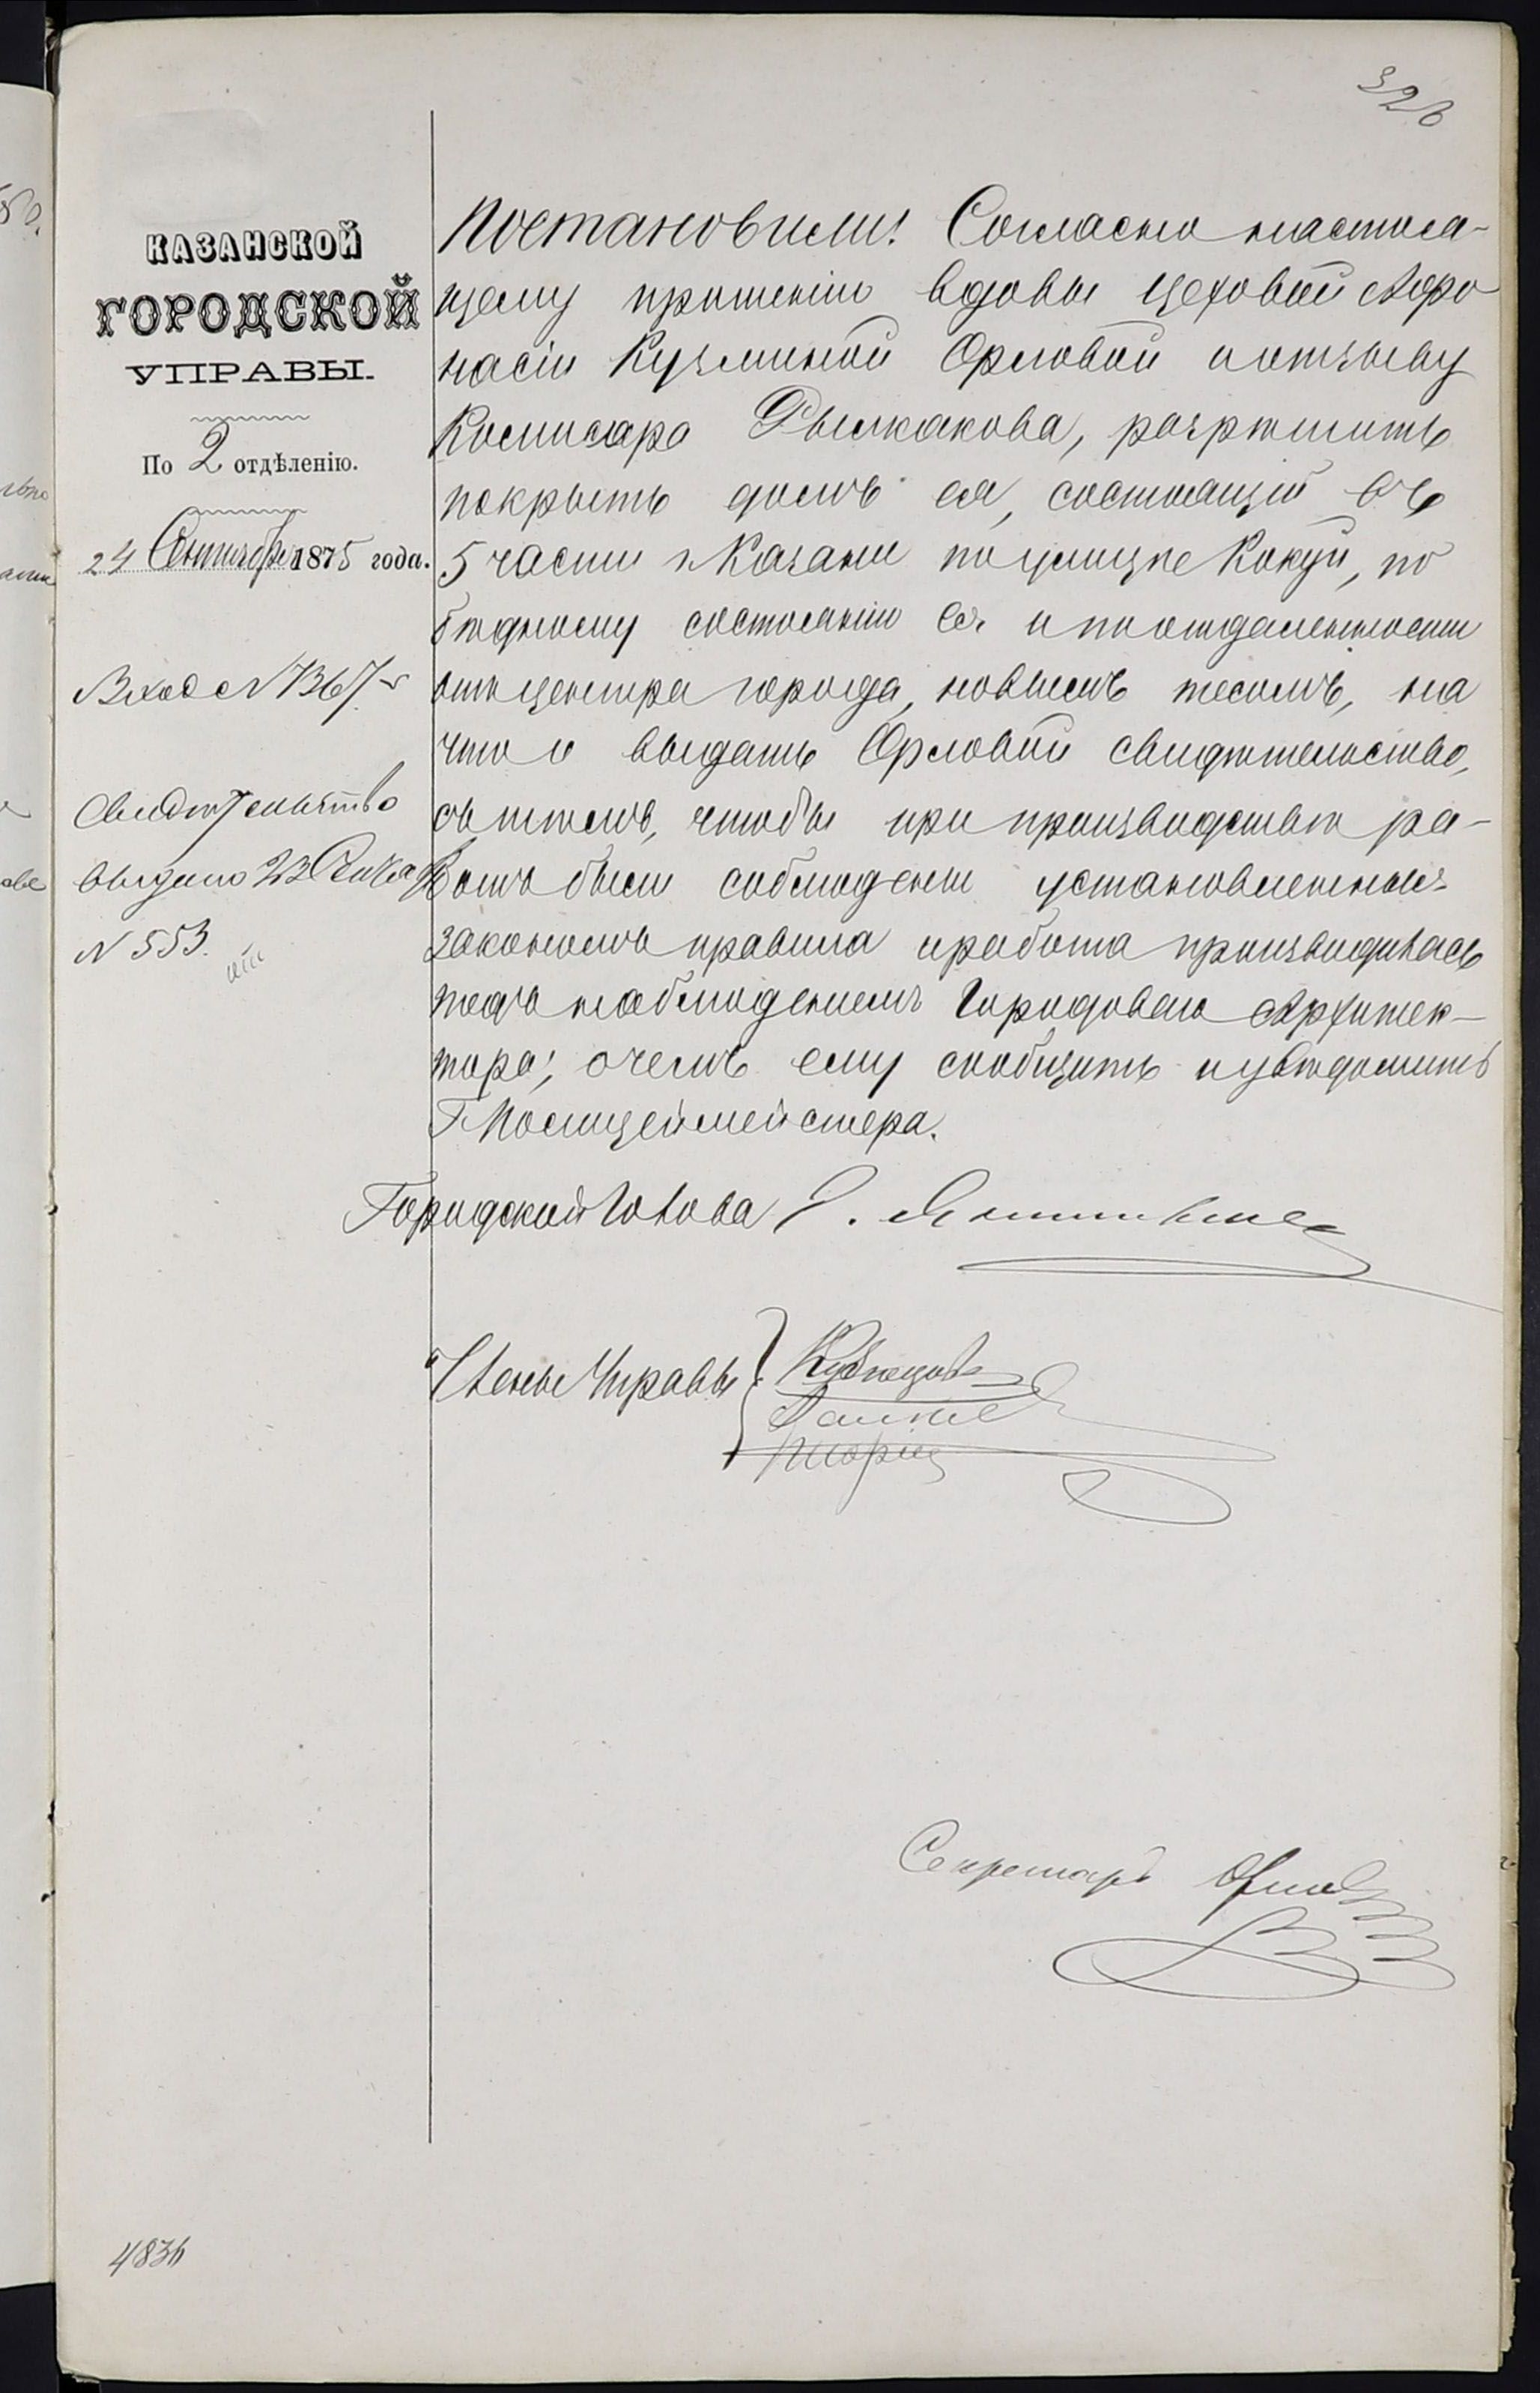 326
КАЗАНСКОЙ
ГОРОДСКОЙ
УПРАВЫ.
По 2 отдѣленію.
24 Сентября 1875 года.
Вход. № 7367
Свидѣтельство
выдано 23 Октября
№ 553.
Постановили: Согласно настоя-
щему прошенію вдовы цеховой Афо
насіи Кузминой Орловой и отзыву
Комисара Рылкакова, разрѣшить
покрыть домъ ея, состоящій въ
5 части г. Казани по улицѣ Кокуй, по
бѣдному состоянію ея и по отдаленности
отъ центра города, новымъ тесомъ, на
что и выдать Орловой свидѣтельство,
съ тѣмъ, чтобы при производствѣ ра-
ботъ были соблюдены установленныя
закономъ правила и работа производилась
подъ наблюденіемъ Городоваго Архитек-
тора; о чемъ ему сообщить и увѣдомить
Г. Полицеймейстера.
Городской Голова Э. Янишевскій
Члены Управы: Кузнецовъ
Секретарь Орловъ
4836